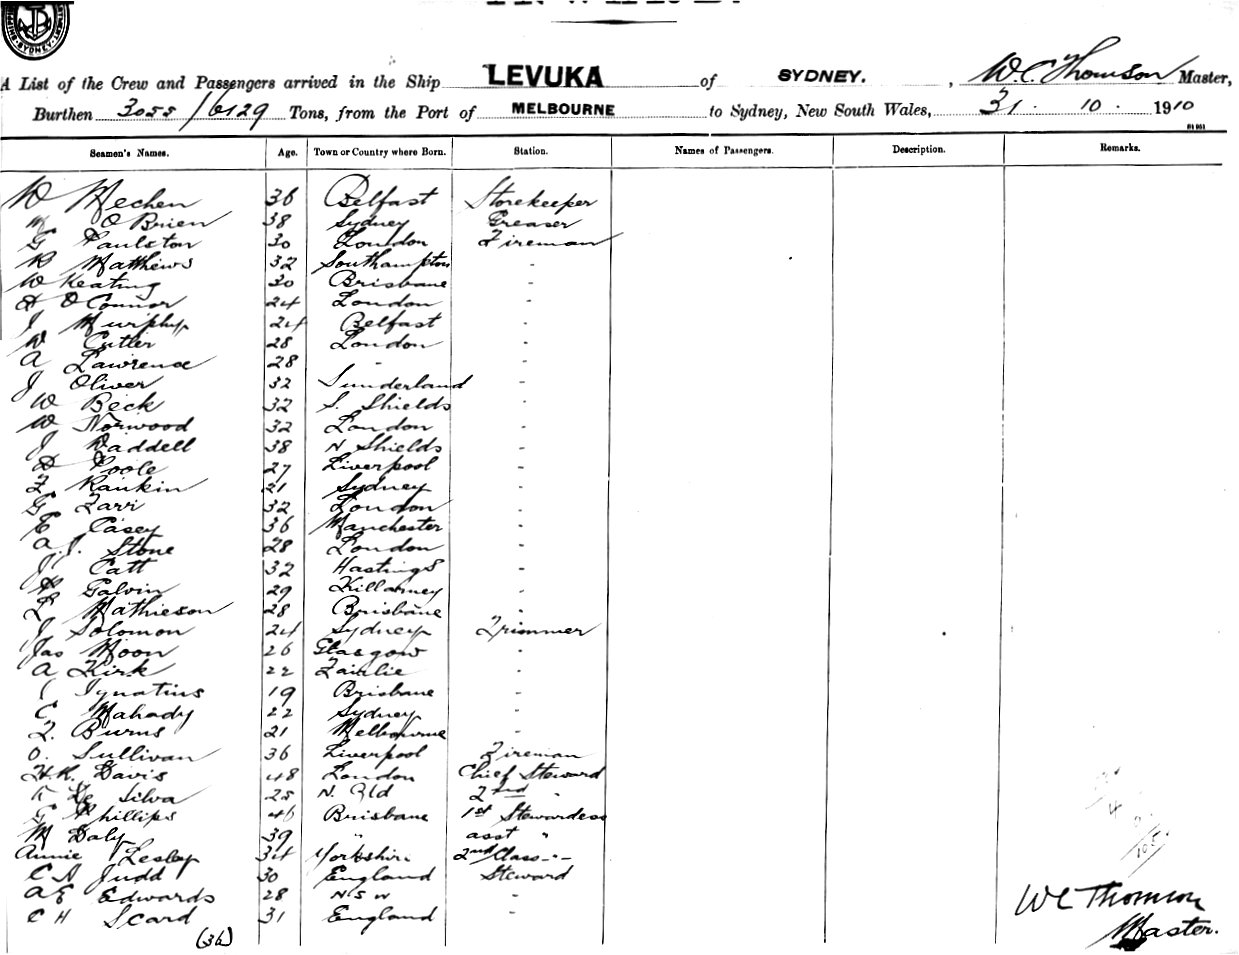 SYDNEY
A List of the Crew and Passengers arrived in the Ship LEVUKA of SYDNEY. , W.C. Thomson Master,
Burthen 3055/6129 Tons, from the Port of MELBOURNE to Sydney, New South Wales, 31 . 10 . 1910
Seamen's Names. Age. Town or Country where Born. Station. Names of Passengers. Description. Remarks.
W Mechen 36 Belfast Storekeeper
M O'Brien 38 Sydney Greaser
G Paulston 30 London Fireman
R Matthews 32 Southampton "
W Keating 30 Brisbane "
H O'Connor 24 London "
J Murphy 24 Belfast "
W Cutler 28 London "
A Lawrence 28 " "
J Oliver 32 Sunderland "
W Beck 32 S. Shields "
W Norwood 32 London "
J Waddell 38 N Shields "
D Poole 27 Liverpool "
F. Rankin 21 Sydney "
G Farr 32 London "
E Casey 36 Manchester "
A. J. Stone 28 London "
J Catt 32 Hastings "
P Galvin 29 Killarney "
L Mathieson 28 Brisbane "
J Solomon 24 Sydney Trimmer
Jas Moon 26 Glasgow "
A Kirk 22 Fairlie "
Ignatius 19 Brisbane "
C Mahady 22 Sydney "
F. Burns 21 Melbourne "
O. Sullivan 36 Liverpool Fireman
H.R. Davis 48 London Chief Steward
De Silva 25 N. Qld 2nd "
G Phillips 46 Brisbane 1st Stewardess
M Daly 39 " asst "
Annie Lesley 34 Yorkshire 2nd Class "
C A Judd 30 England Steward
A E Edwards 28 N S W "
C H Scard 31 England "
(36)
WC Thomson
Master.